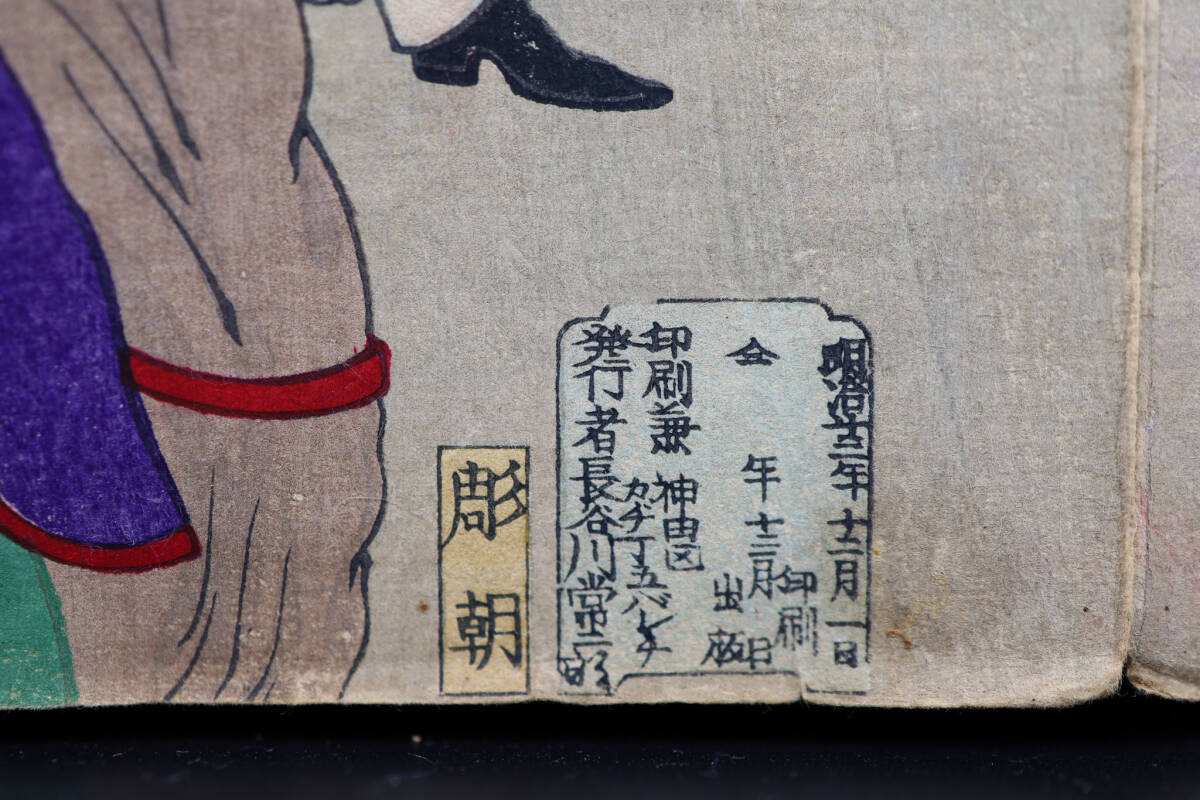 明治廿二年十二月一日
印刷
仝 年十二月 日
出版
印刷兼 神田区
カヂ丁五バンチ
発行者長谷川常二郎
彫朝